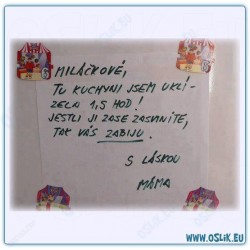 OSLiK.EU
MILÁČKOVÉ,
TU KUCHYNI JSEM UKLÍ-
ZELA 1,5 HOD!
JESTLI JI ZASE ZASVINÍTE,
TAK VÁS ZABIJU.
S LÁSKOU
MÁMA
www.OSLiK.EU